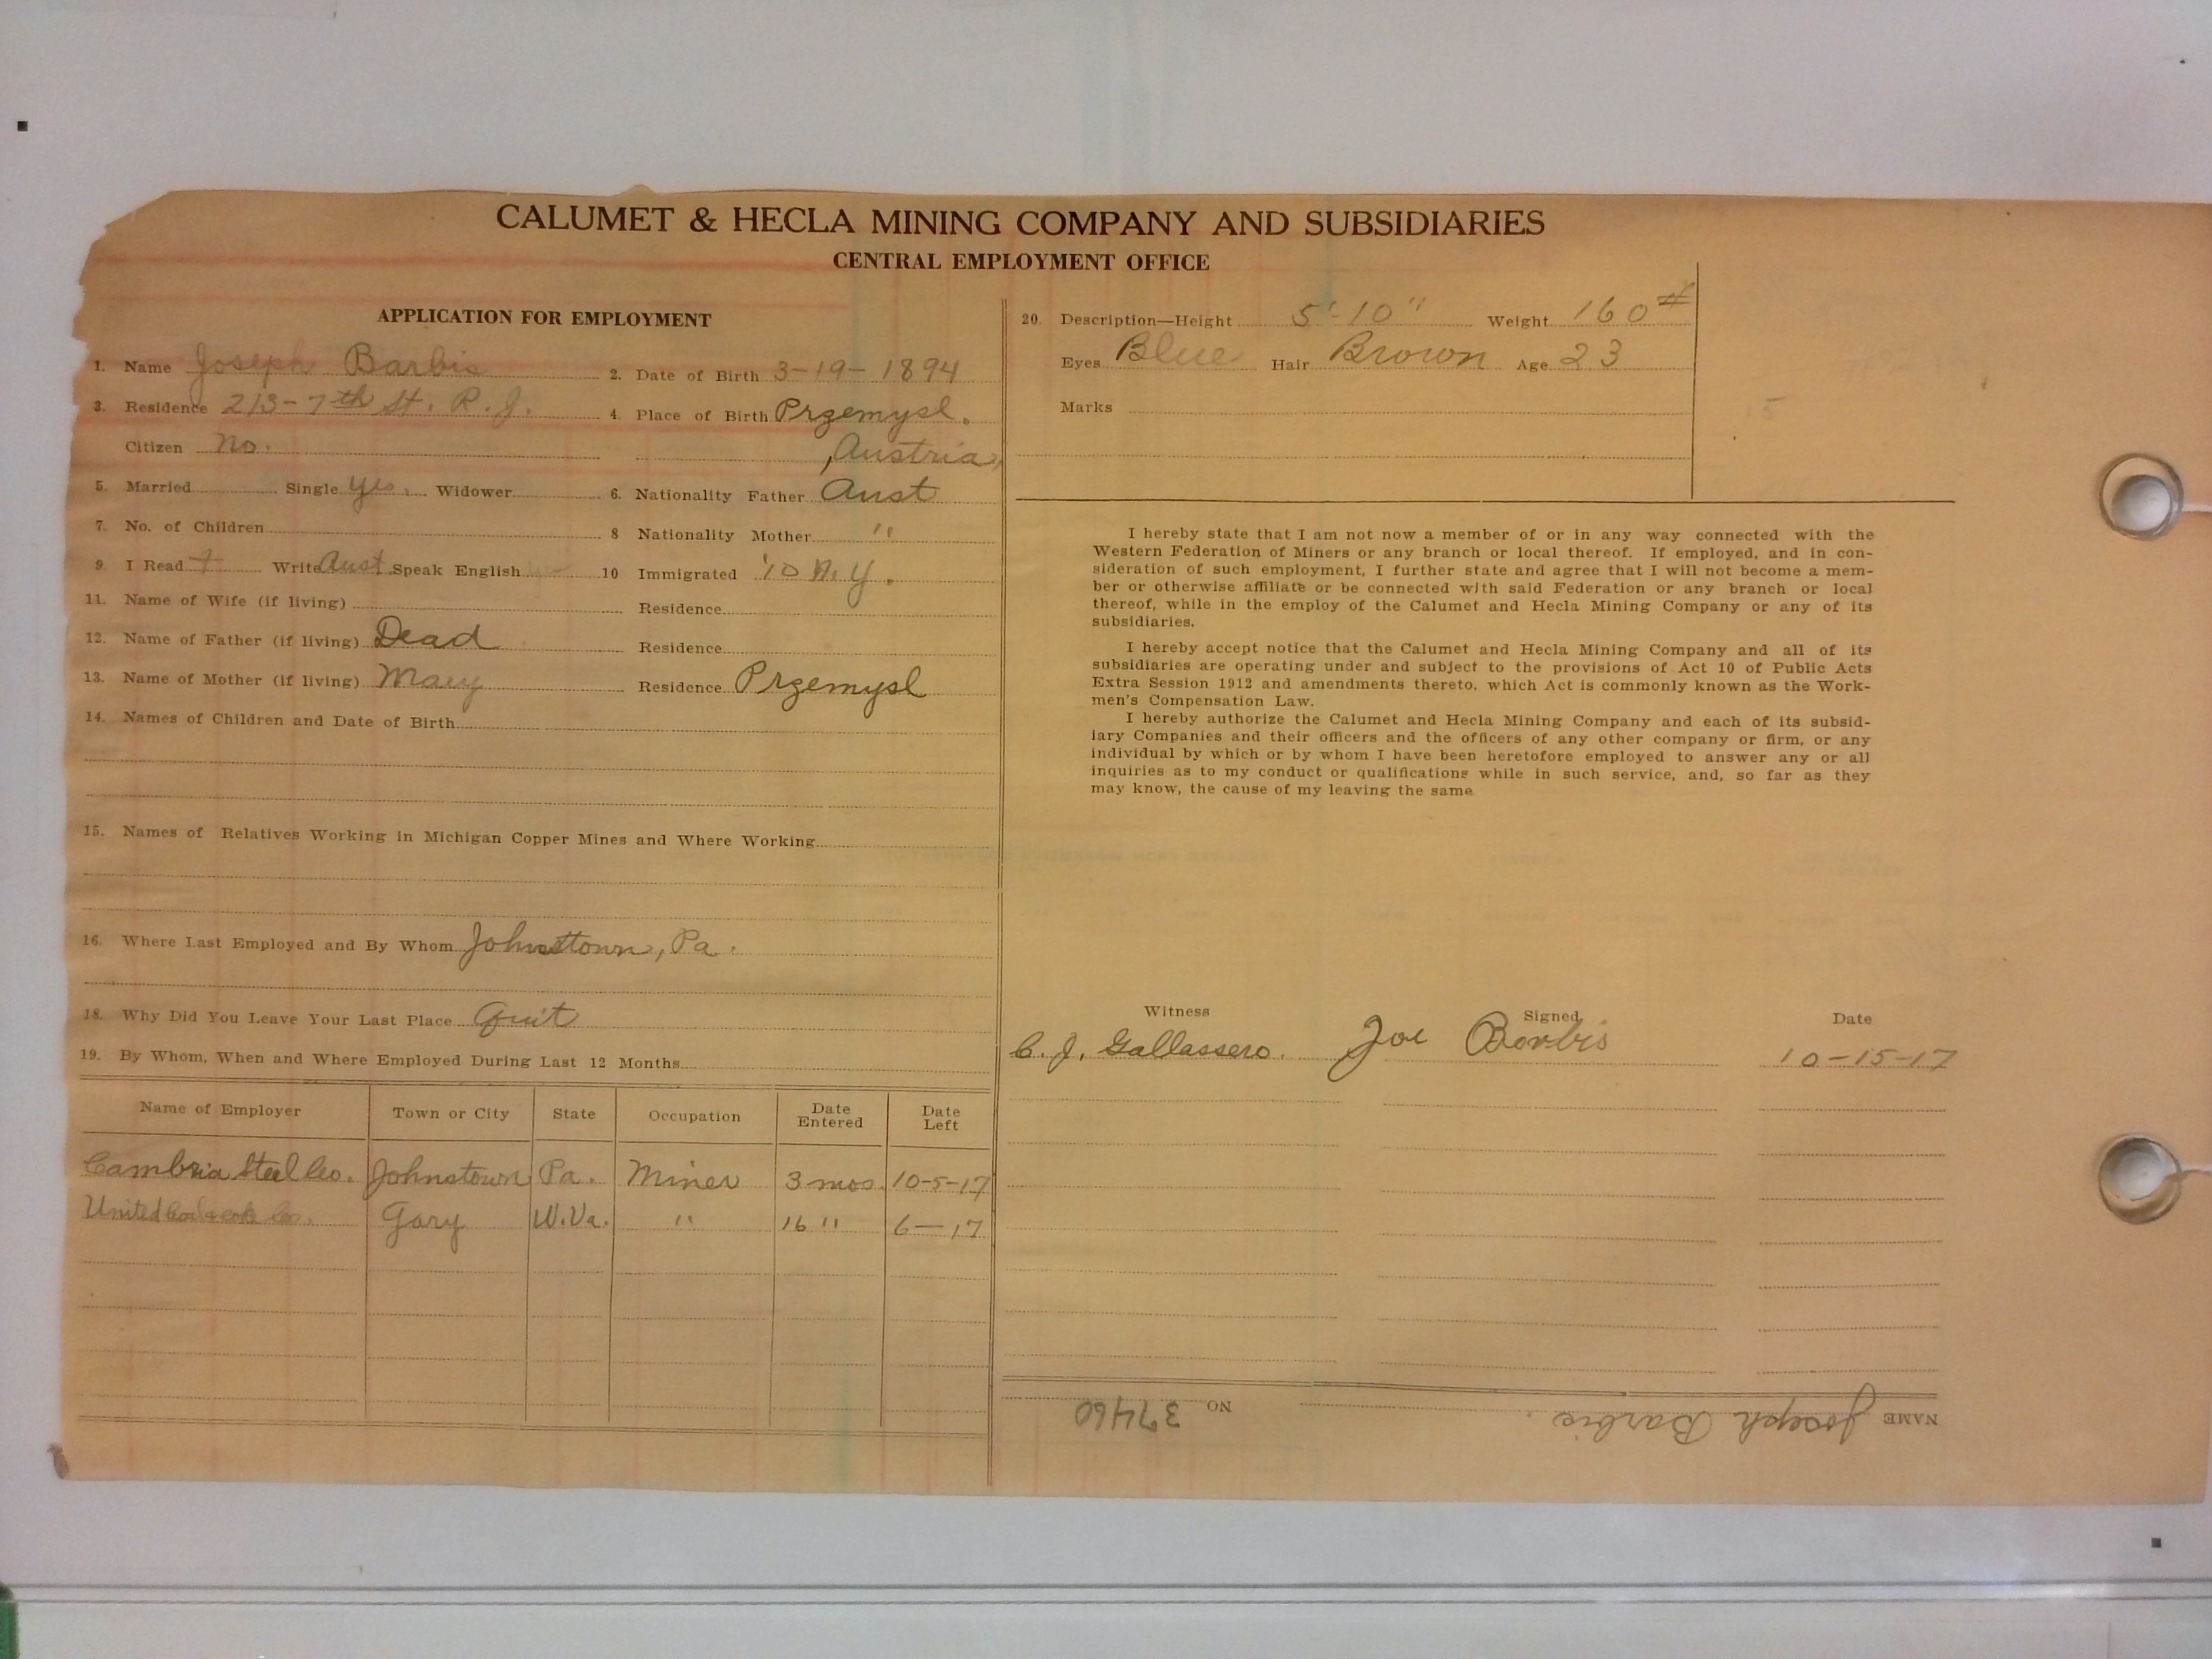 CALUMET & HECLA MINING COMPANY AND SUBSIDIARIES
CENTRAL EMPLOYMENT OFFICE
APPLICATION FOR EMPLOYMENT
1. Name Joseph Barbis 2. Date of Birth 3-19-1894
3. Residence 213-7th St. R.J. 4. Place of Birth Przemysl.
Citizen no. , Austria,
5. Married Single yes. Widower 6. Nationality Father Aust
7. No. of Children 8 Nationality Mother "
9. I Read Write Aust Speak English 10 Immigrated '10 N.Y.
11. Name of Wife (if living) Residence
12. Name of Father (if living) Dead Residence
13. Name of Mother (if living) Mary Residence Przemysl
14. Names of Children and Date of Birth
15. Names of Relatives Working in Michigan Copper Mines and Where Working
16. Where Last Employed and By Whom Johnstown, Pa.
18. Why Did You Leave Your Last Place Quit
19. By Whom, When and Where Employed During Last 12 Months
Name of Employer Town or City State Occupation Date Entered Date Left
Cambria Steel Co. Johnstown Pa. Miner 3 mos. 10-5-17
United Coal & Coke Co. Gary W.Va. " 16 " 6-17
20. Description—Height 5'-10" Weight 160#
Eyes Blue Hair Brown Age 23
Marks
I hereby state that I am not now a member of or in any way connected with the
Western Federation of Miners or any branch or local thereof. If employed, and in con-
sideration of such employment, I further state and agree that I will not become a mem-
ber or otherwise affiliate or be connected with said Federation or any branch or local
thereof, while in the employ of the Calumet and Hecla Mining Company or any of its
subsidiaries.
I hereby accept notice that the Calumet and Hecla Mining Company and all of its
subsidiaries are operating under and subject to the provisions of Act 10 of Public Acts
Extra Session 1912 and amendments thereto, which Act is commonly known as the Work-
men's Compensation Law.
I hereby authorize the Calumet and Hecla Mining Company and each of its subsid-
iary Companies and their officers and the officers of any other company or firm, or any
individual by which or by whom I have been heretofore employed to answer any or all
inquiries as to my conduct or qualifications while in such service, and, so far as they
may know, the cause of my leaving the same
Witness Signed Date
C. J. Gallassero. Joe Borbis 10-15-17
NAME Joseph Barbis. NO 37460